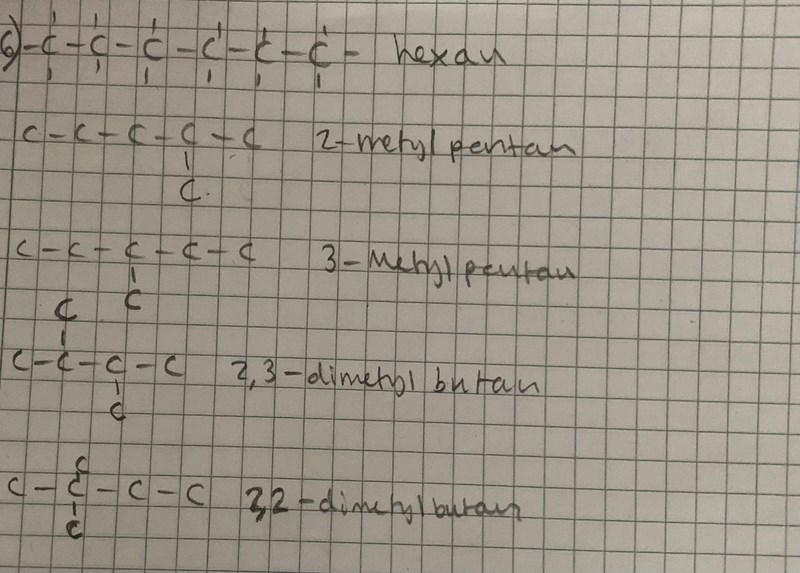 6) -C-C-C-C-C-C- hexan
C-C-C-C-C 2-metyl pentan
C.
C-C-C-C-C 3-Metyl pentan
C C
C-C-C-C 2,3-dimetyl butan
C
C
C-C-C-C 2,2-dimetyl butan
C